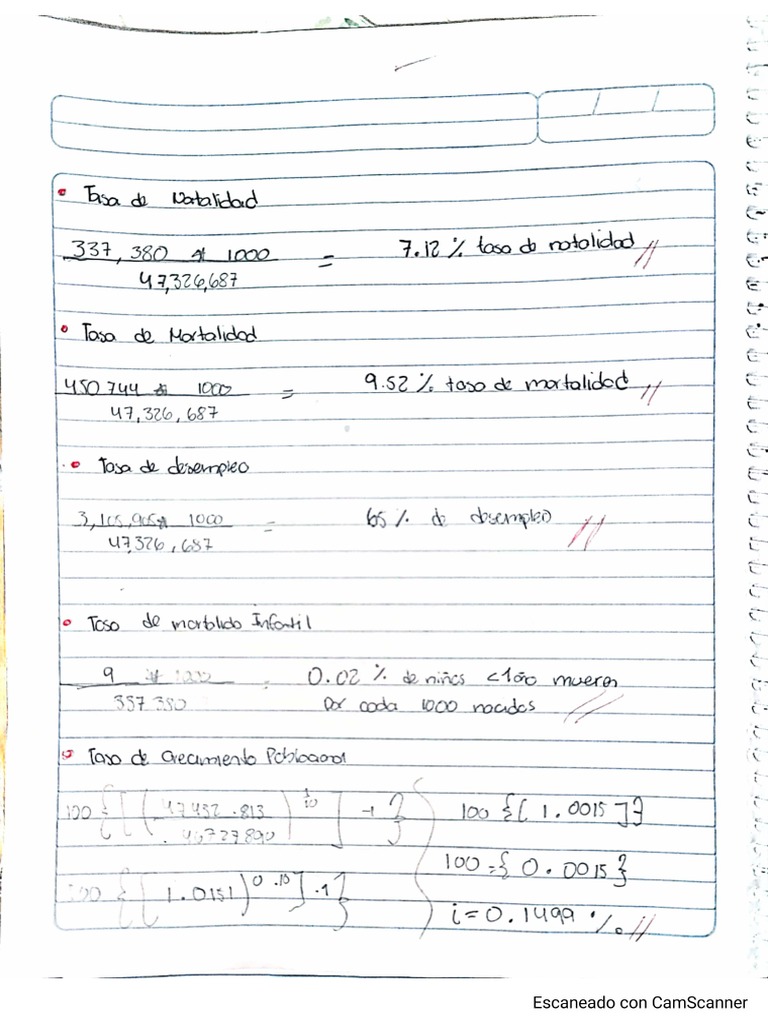 • Tasa de Natalidad
337,380 * 1000 = 7.12 % tasa de natalidad //
47,326,687
• Tasa de Mortalidad
450 744 * 1000 = 9.52 % tasa de mortalidad //
47,326,687
• Tasa de desempleo
3,105,905 * 1000 = 65 % de desempleo //
47,326,687
• Tasa de Infantil
9 * 1000 = 0.02 % de niños <1año mueren
337 380 por cada 1000 nacidos //
• Tasa de Crecimiento Poblacional
100 {[( 47432.813 )^1/10 ] -1 } 100 {[ 1.0015 ]}
100 = { 0.0015 }
100 {[ 1.0151 )^0.10 ] -1 }
i = 0.1499 % //
Escaneado con CamScanner